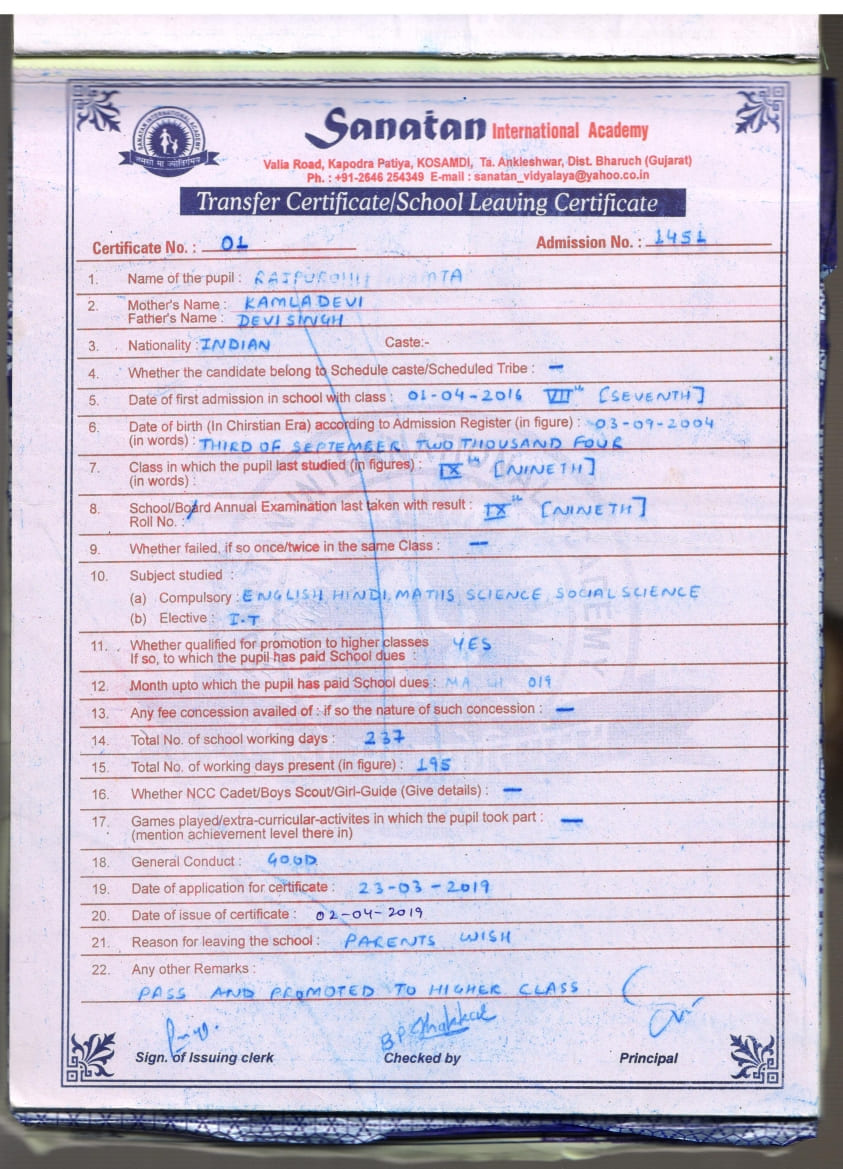 SANATAN INTERNATIONAL ACADEMY
तमसो मा ज्योतिर्गमय
Sanatan International Academy
Valia Road, Kapodra Patiya, KOSAMDI, Ta. Ankleshwar, Dist. Bharuch (Gujarat)
Ph. : +91-2646 254349 E-mail : sanatan_vidyalaya@yahoo.co.in
Transfer Certificate/School Leaving Certificate
Certificate No. : 01 Admission No. : 1451
1. Name of the pupil :
2. Mother's Name : KAMLADEVI
Father's Name : DEVISINGH
3. Nationality : INDIAN Caste:-
4. Whether the candidate belong to Schedule caste/Scheduled Tribe : -
5. Date of first admission in school with class : 01-04-2016 VIIth [SEVENTH]
6. Date of birth (In Chirstian Era) according to Admission Register (in figure) : 03-09-2004
(in words) : THIRD OF SEPTEMBER TWO THOUSAND FOUR
7. Class in which the pupil last studied (in figures) : IXth [NINETH]
(in words) :
8. School/Board Annual Examination last taken with result : IXth [NINETH]
Roll No. :
9. Whether failed, if so once/twice in the same Class : -
10. Subject studied :
(a) Compulsory : ENGLISH HINDI, MATHS SCIENCE SOCIAL SCIENCE
(b) Elective : I.T
11. Whether qualified for promotion to higher classes YES
If so, to which the pupil has paid School dues :
12. Month upto which the pupil has paid School dues : 019
13. Any fee concession availed of : if so the nature of such concession : -
14. Total No. of school working days : 237
15. Total No. of working days present (in figure) : 195
16. Whether NCC Cadet/Boys Scout/Girl-Guide (Give details) : -
17. Games played/extra-curricular-activites in which the pupil took part : -
(mention achievement level there in)
18. General Conduct : GOOD
19. Date of application for certificate : 23-03-2019
20. Date of issue of certificate : 02-04-2019
21. Reason for leaving the school : PARENTS WISH
22. Any other Remarks :
PASS AND PROMOTED TO HIGHER CLASS
Sign. of Issuing clerk Checked by Principal